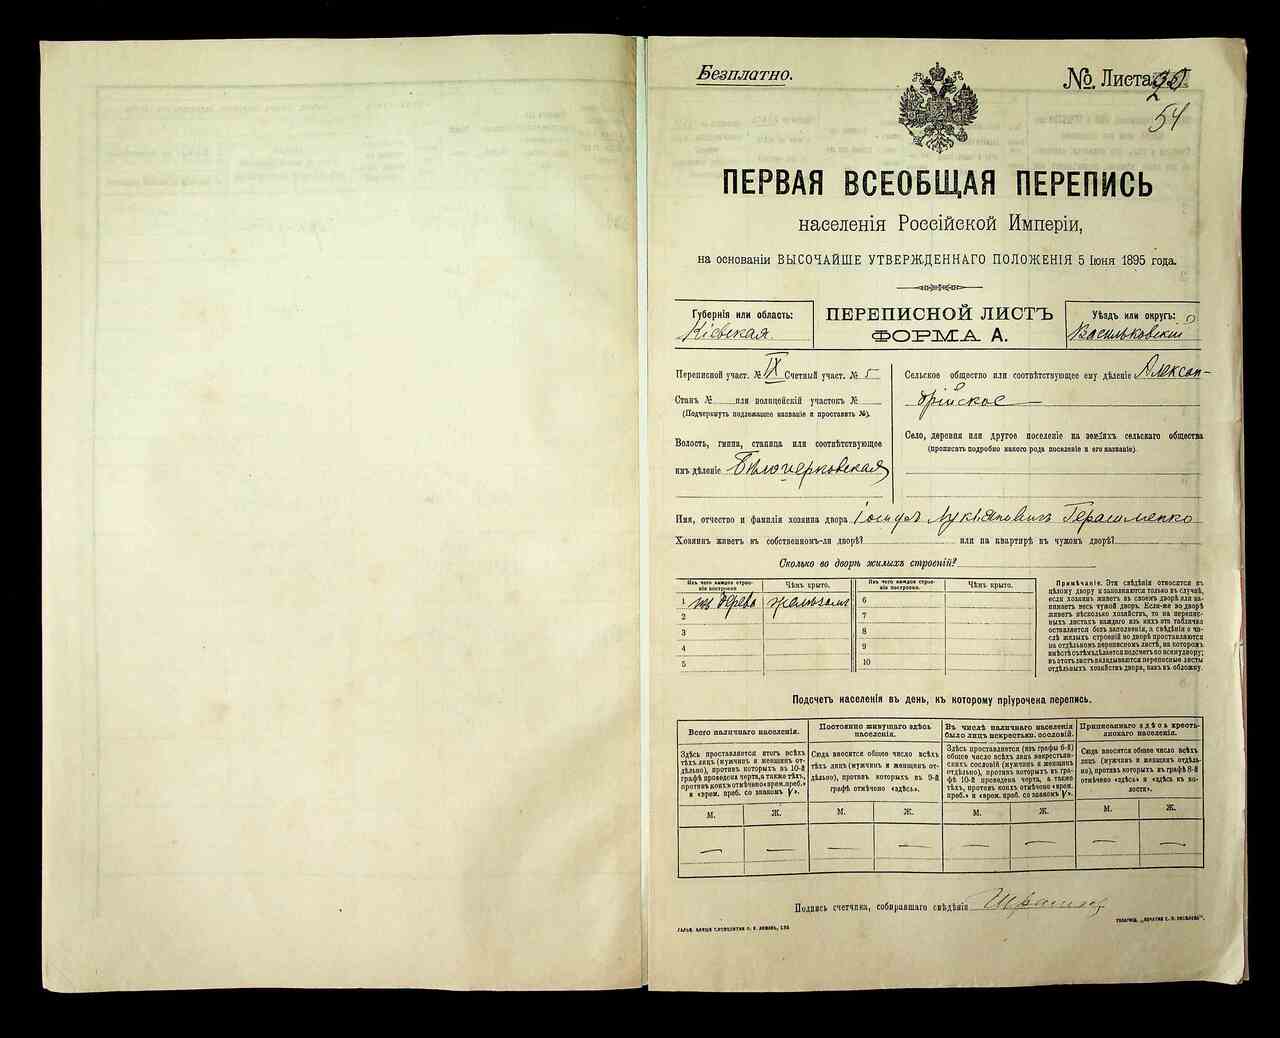 Безплатно.
№. Листа 20
54
ПЕРВАЯ ВСЕОБЩАЯ ПЕРЕПИСЬ
населенія Россійской Имперіи,
на основаніи ВЫСОЧАЙШЕ УТВЕРЖДЕННАГО ПОЛОЖЕНІЯ 5 Іюня 1895 года.
Губернія или область:
Кіевская.
ПЕРЕПИСНОЙ ЛИСТЪ
ФОРМА А.
Уѣздъ или округъ:
Васильковскій
Переписной участ. № IX Счетный участ. № 5
Станъ № или полицейскій участокъ №
(Подчеркнуть подлежащее названіе и проставить №).
Волость, гмина, станица или соотвѣтствующее
имъ дѣленіе Бѣлоцерковская
Сельское общество или соотвѣтствующее ему дѣленіе Алексан-
дрійское
Село, деревня или другое поселеніе на земляхъ сельскаго общества
(прописать подробно какого рода поселеніе и его названіе).
Имя, отчество и фамилія хозяина двора Іосифъ Лукьяновичъ Герасименко
Хозяинъ живетъ въ собственномъ-ли дворѣ? или на квартирѣ въ чужомъ дворѣ?
Сколько во дворѣ жилыхъ строеній?
Изъ чего каждое строе-
ніе построено.
Чѣмъ крыто.
Изъ чего каждое строе-
ніе построено.
Чѣмъ крыто.
1 изъ дерева желѣзомъ 6
2 7
3 8
4 9
5 10
Примѣчаніе. Эти свѣдѣнія относятся къ
цѣлому двору и заполняются только въ случаѣ,
если хозяинъ живетъ въ своемъ дворѣ или за-
нимаетъ весь чужой дворъ. Если-же во дворѣ
живетъ нѣсколько хозяйствъ, то на перепис-
ныхъ листахъ каждаго изъ нихъ эта табличка
оставляется безъ заполненія, а свѣдѣнія о чи-
слѣ жилыхъ строеній во дворѣ проставляются
на отдѣльномъ переписномъ листѣ, на которомъ
вмѣстѣ съ тѣмъ дѣлается подсчетъ по всему двору;
въ этотъ листъ вкладываются переписные листы
отдѣльныхъ хозяйствъ двора, какъ въ обложку.
Подсчетъ населенія въ день, къ которому пріурочена перепись.
Всего наличнаго населенія.
Постоянно живущаго здѣсь
населенія.
Въ числѣ наличнаго населенія
было лицъ некрестьян. сословій.
Приписаннаго здѣсь кресть-
янскаго населенія.
Здѣсь проставляется итогъ всѣхъ
тѣхъ лицъ (мужчинъ и женщинъ от-
дѣльно), противъ которыхъ въ 10-й
графѣ проведена черта, а также тѣхъ,
противъ коихъ отмѣчено «врем. преб.»
и «врем. преб. со знакомъ V».
Сюда вносится общее число всѣхъ
тѣхъ лицъ (мужчинъ и женщинъ от-
дѣльно), противъ которыхъ въ 9-й
графѣ отмѣчено «здѣсь».
Здѣсь проставляется (изъ графы 6-й)
общее число всѣхъ лицъ некрестьян-
скихъ сословій (мужчинъ и женщинъ
отдѣльно), противъ которыхъ въ гра-
фѣ 10-й проведена черта, а также
тѣхъ, противъ коихъ отмѣчено «врем.
преб.» и «врем. преб. со знакомъ V».
Сюда вносится общее число всѣхъ
лицъ (мужчинъ и женщинъ отдѣль-
но), противъ которыхъ въ графѣ 8-й
отмѣчено «здѣсь» и «здѣсь въ во-
лости».
М. Ж. М. Ж. М. Ж. М. Ж.
— — — — — — — —
Подпись счетчика, собиравшаго свѣдѣнія